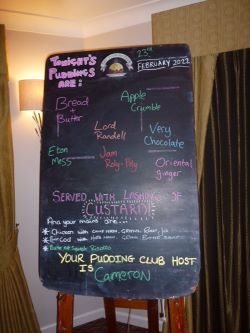 TONIGHT'S
PUDDINGS
ARE:
23RD
FEBRUARY 2022
Bread
+
Butter
Apple
Crumble
Lord
Randell
Very
Chocolate
Eton
Mess
Jam
Roly-Poly
Oriental
ginger
SERVED WITH LASHINGS OF
CUSTARD!
And your mains are...
* Chicken with
* Cod with
* Squash Risotto
YOUR PUDDING CLUB HOST
IS Cameron